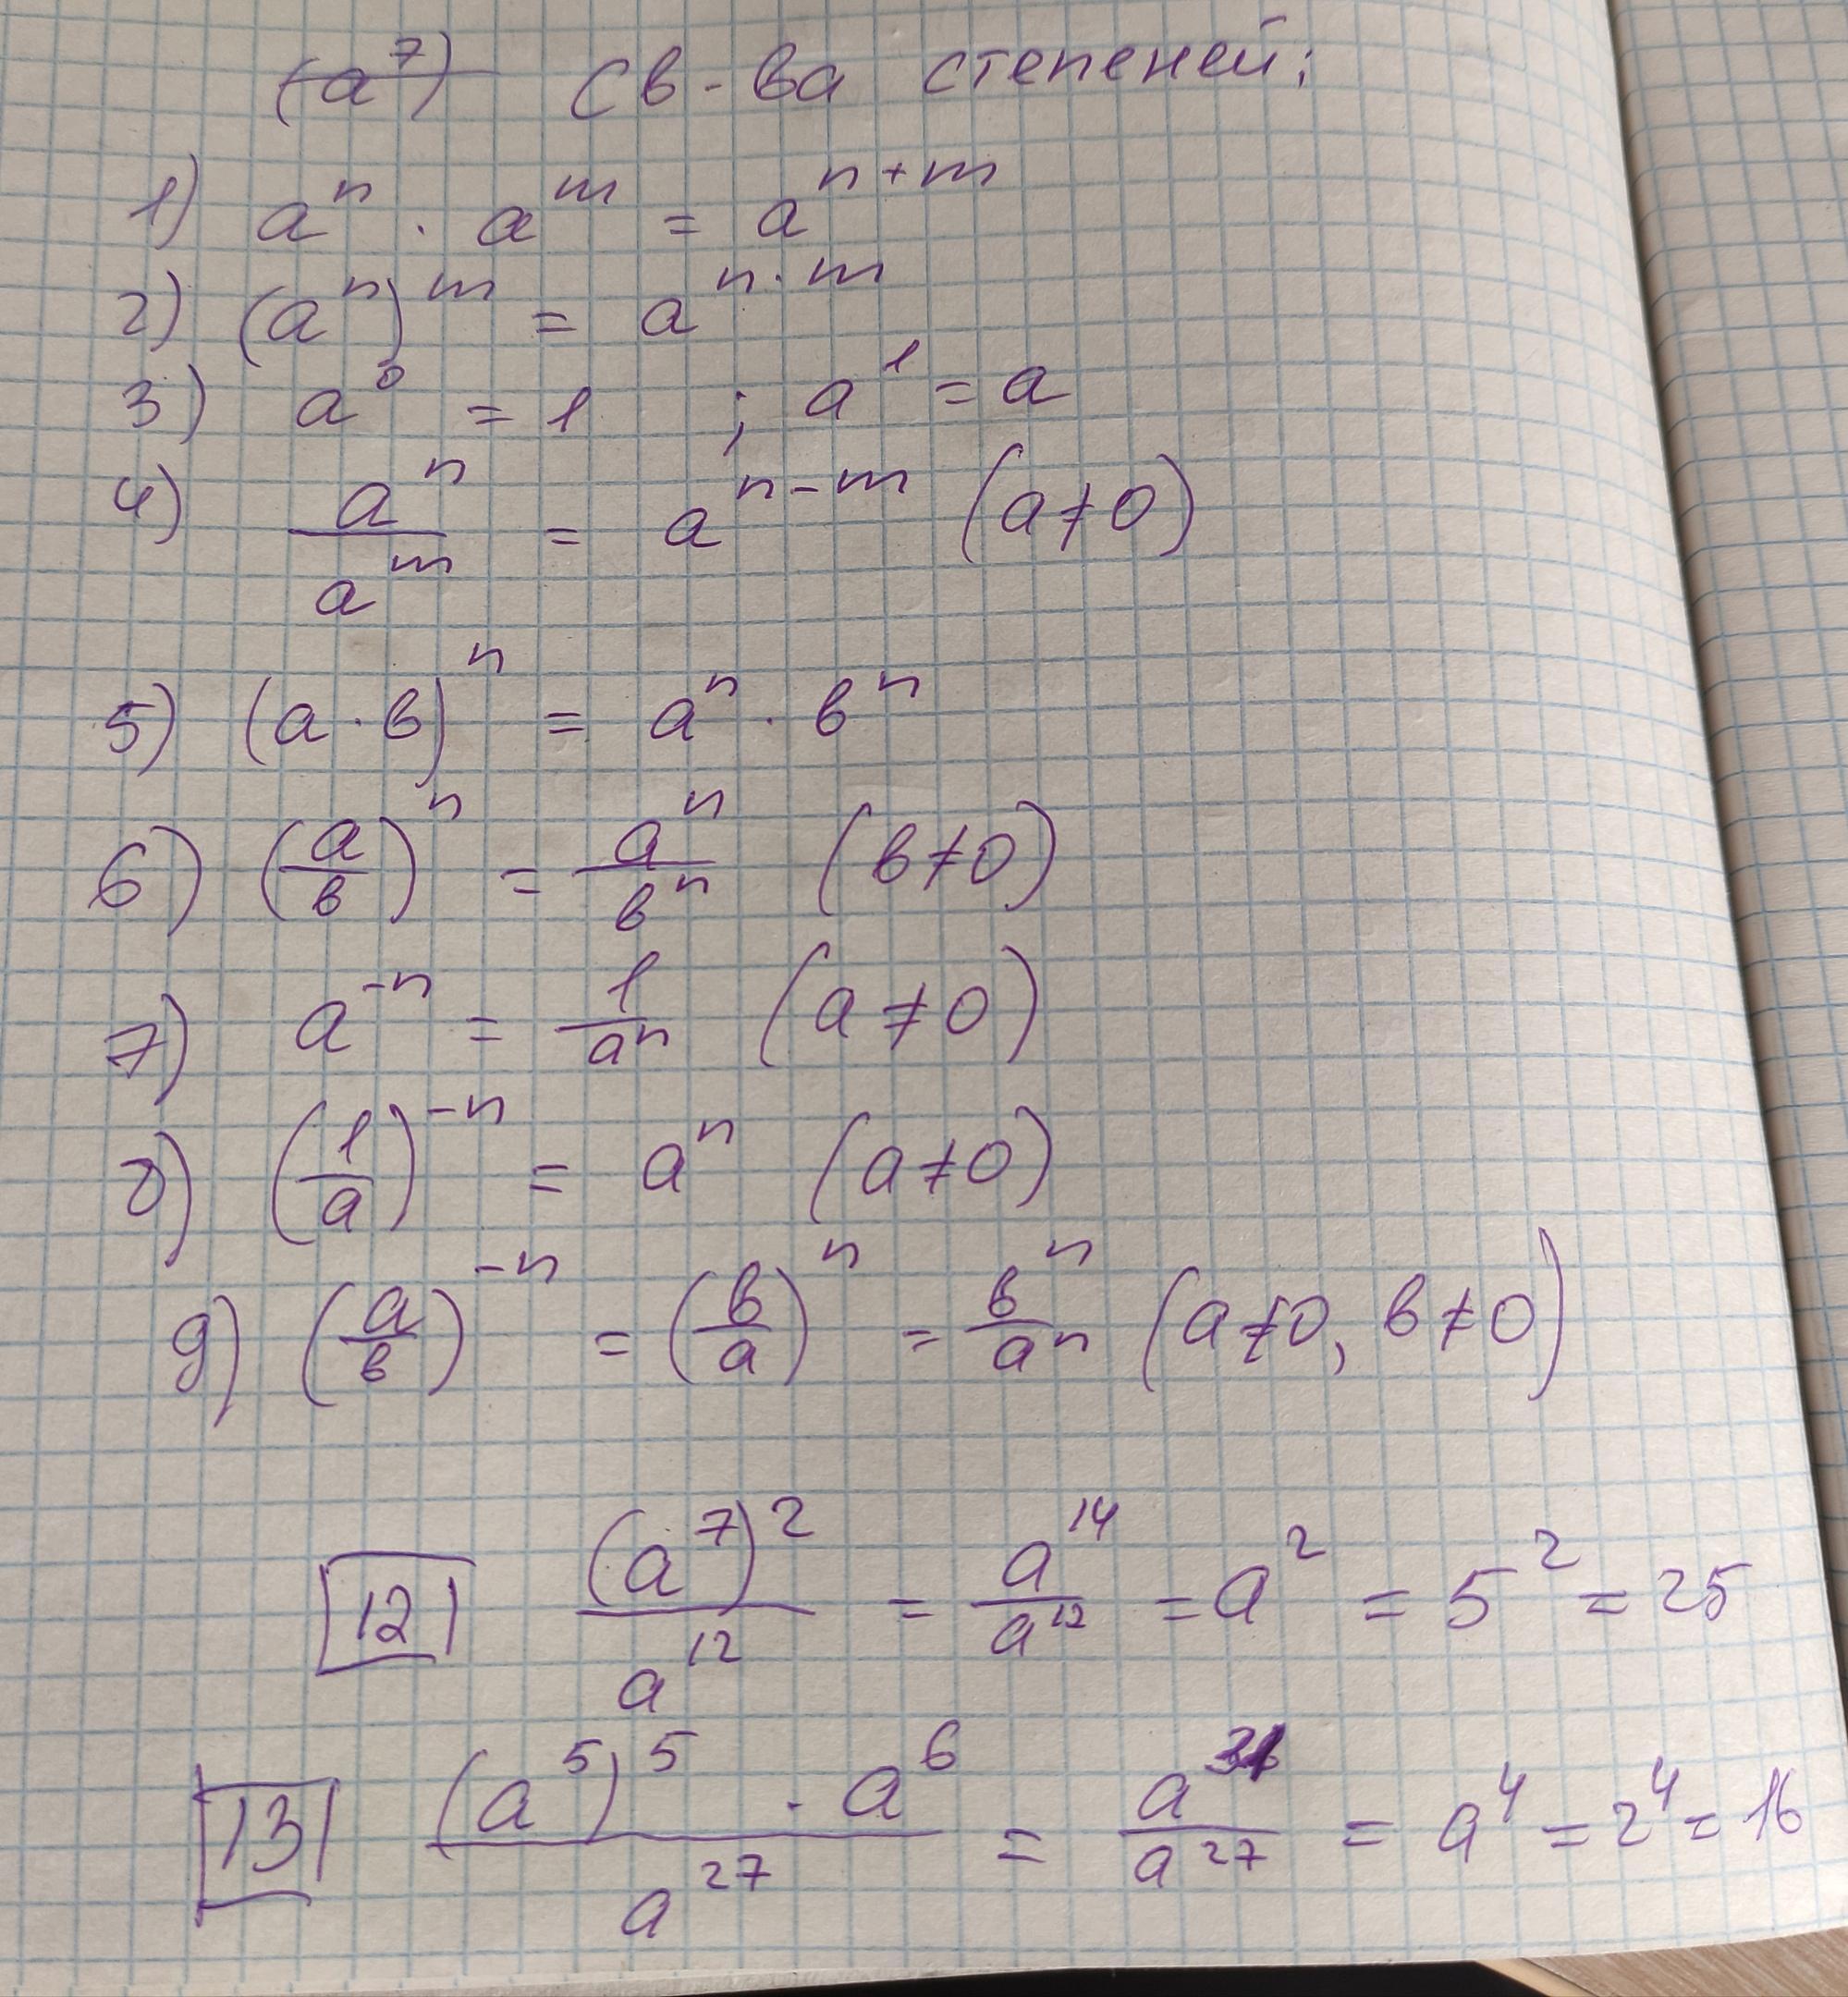 (a⁷) Св-ва степеней:
1) aⁿ · aᵐ = aⁿ⁺ᵐ
2) (aⁿ)ᵐ = a^(n·m)
3) a⁰ = 1 ; a¹ = a
4) aⁿ/aᵐ = aⁿ⁻ᵐ (a≠0)
5) (a·в)ⁿ = aⁿ · вⁿ
6) (a/в)ⁿ = aⁿ/вⁿ (в≠0)
7) a⁻ⁿ = 1/aⁿ (a≠0)
8) (1/a)⁻ⁿ = aⁿ (a≠0)
9) (a/в)⁻ⁿ = (в/a)ⁿ = вⁿ/aⁿ (a≠0, в≠0)
12 (a⁷)²/a¹² = a¹⁴/a¹² = a² = 5² = 25
13 (a⁵)⁵ · a⁶/a²⁷ = a³¹/a²⁷ = a⁴ = 2⁴ = 16